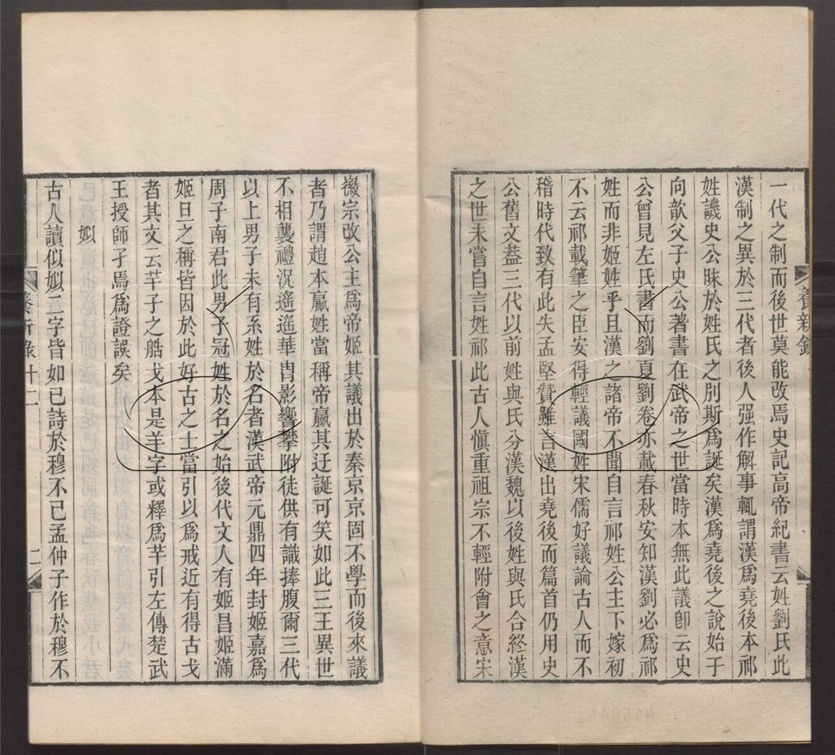 一代之制而後世莫能改焉史記高帝紀書云姓劉氏此
漢制之異於三代者後人强作解事輒謂漢爲堯後本祁
姓譏史公昧於姓氏之別斯爲誕矣漢爲堯後之說始于
向歆父子史公著書在武帝之世當時本無此議卽云史
公曾見左氏書而劉夏劉卷亦載春秋安知漢劉必爲祁
姓而非姬姓乎且漢之諸帝不聞自言祁姓公主下嫁初
不云祁載筆之臣安得輕議國姓宋儒好議論古人而不
稽時代致有此失孟堅贊雖言漢出堯後而篇首仍用史
公舊文葢三代以前姓與氏分漢魏以後姓與氏合終漢
之世未嘗自言姓祁此古人愼重祖宗不輕附會之意宋
徽宗改公主爲帝姬其議出於秦京京固不學而後來議
者乃謂趙本嬴姓當稱帝嬴其迂誕可笑如此三王異世
不相襲禮況遙遙華胄影響攀附徒供有識捧腹爾三代
以上男子未有系姓於名者漢武帝元鼎四年封姬嘉爲
周子南君此男子冠姓於名之始後代文人有姬昌姬滿
姬旦之稱皆因於此好古之士當引以爲戒近有得古戈
者其文云芊子之艁戈本是羊字或釋爲芊引左傳楚武
王授師孑焉爲證誤矣
姒
古人讀似姒二字皆如已詩於穆不已孟仲子作於穆不
養新錄十二
二
養新錄